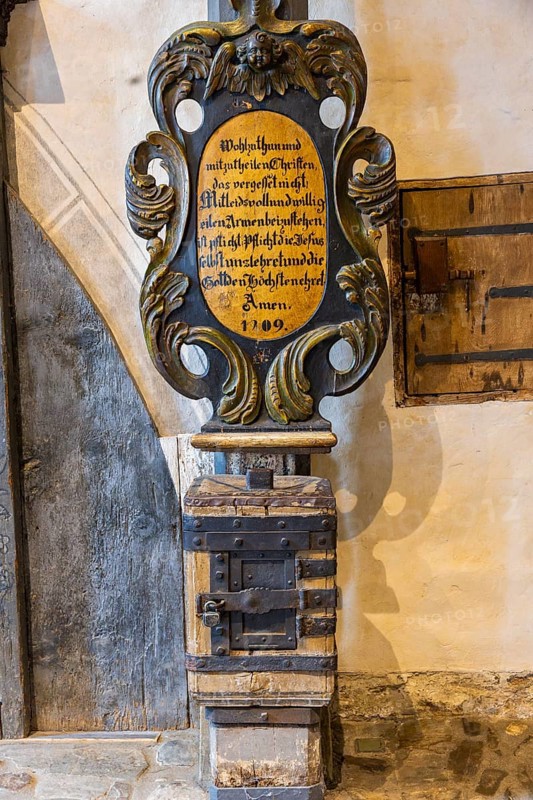 Wohlzuthun und
mitzutheilen Christen,
das vergesset nicht;
Mitleidsvoll und willig
eilen Armen beizustehen,
ist pflicht Pflicht die Jesus
selbst uns lehret und die
Gott den Höchsten ehret
Amen.
1709.
PHOTO12